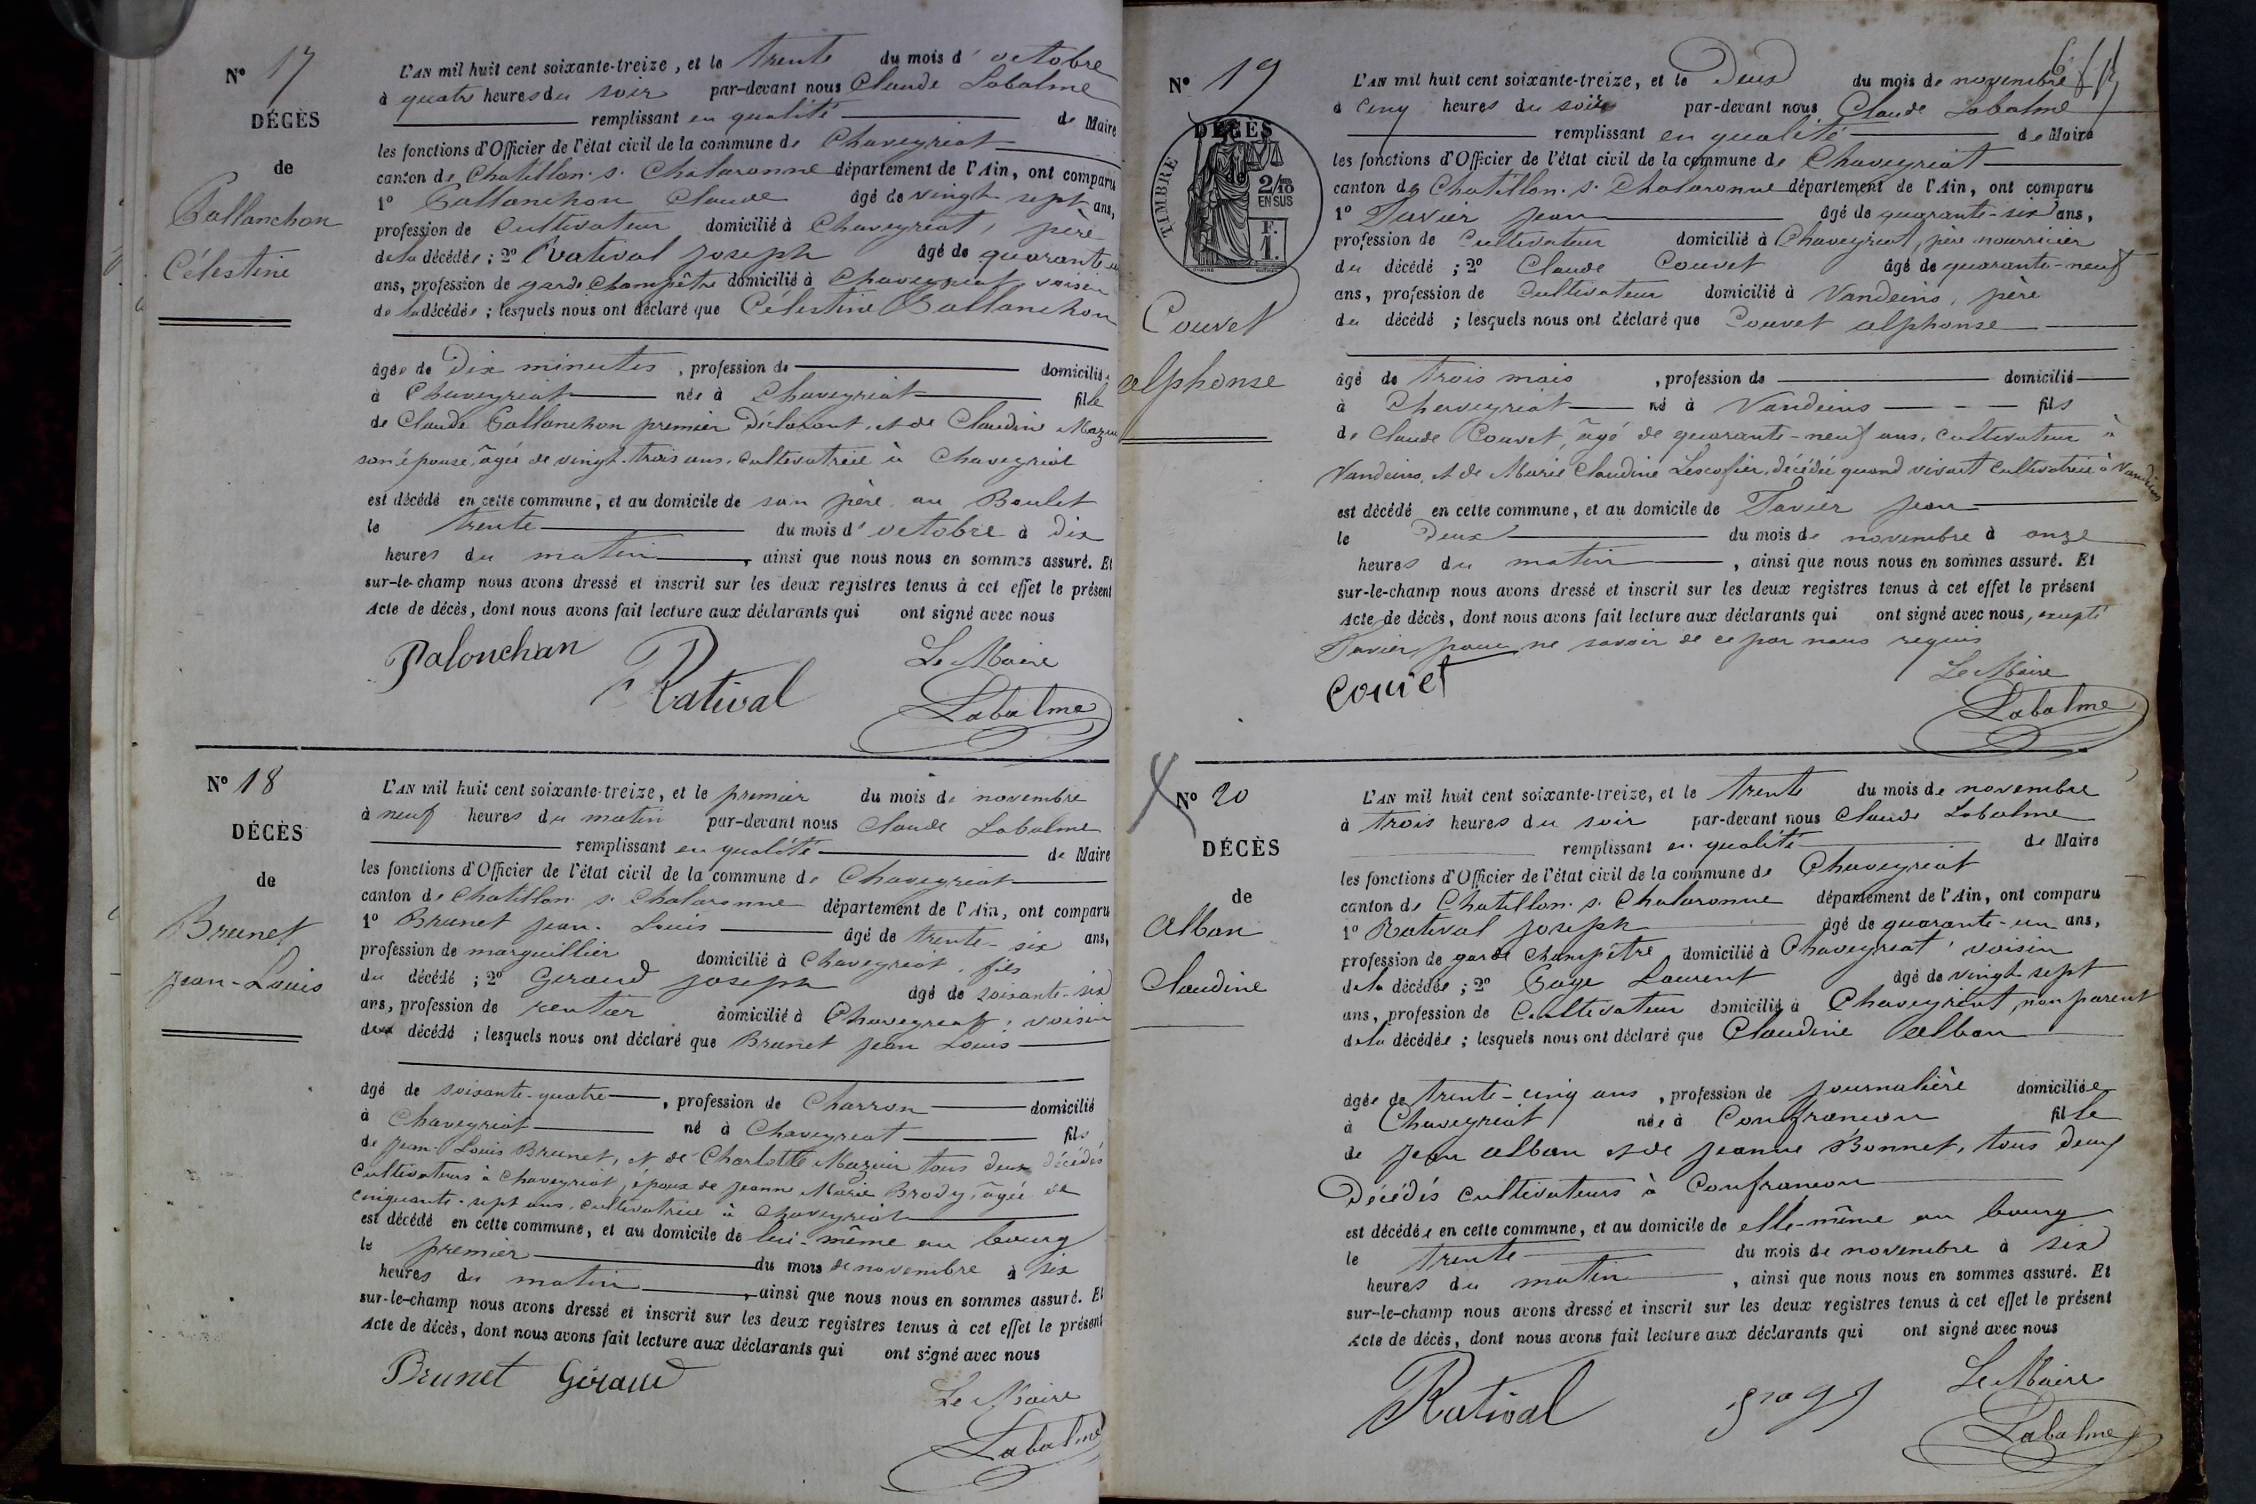 Nº 17
DÉCÈS
de
Pallanchon
Célestine
L'AN mil huit cent soixante-treize, et le trente du mois d'octobre
à quatre heures du soir par-devant nous Claude Labalme
remplissant en qualité de Maire
les fonctions d'Officier de l'état civil de la commune de Chaveyriat
canton de Chatillon s. Chalaronne département de l'Ain, ont comparu
1º Pallanchon Claude âgé de vingt sept ans,
profession de Cultivateur domicilié à Chaveyriat, père
de la décédée ; 2º Ratival Joseph âgé de quarante un
ans, profession de garde Champêtre domicilié à Chaveyriat voisin
de la décédée ; lesquels nous ont déclaré que Célestine Pallanchon
âgée de Dix minutes , profession de domiciliée
à Chaveyriat née à Chaveyriat fille
de Claude Pallanchon premier Déclarant, et de Claudine Mazuir
son épouse, âgée de vingt-trois ans, cultivatrice à Chaveyriat
est décédé en cette commune, et au domicile de son père au Boulet
le trente du mois d'octobre à dix
heures du matin , ainsi que nous nous en sommes assuré. Et
sur-le-champ nous avons dressé et inscrit sur les deux registres tenus à cet effet le présent
Acte de décès, dont nous avons fait lecture aux déclarants qui ont signé avec nous
Palonchan Ratival Le Maire
Labalme
Nº 18
DÉCÈS
de
Brunet
Jean-Louis
L'AN mil huit cent soixante-treize, et le premier du mois de novembre
à neuf heures du matin par-devant nous Claude Labalme
remplissant en qualité de Maire
les fonctions d'Officier de l'état civil de la commune de Chaveyriat
canton de Chatillon s. Chalaronne département de l'Ain, ont comparu
1º Brunet Jean-Louis âgé de trente-six ans,
profession de marguillier domicilié à Chaveyriat, fils
du décédé ; 2º Geraud Joseph âgé de soixante-six
ans, profession de rentier domicilié à Chaveyriat, voisin
du décédé ; lesquels nous ont déclaré que Brunet Jean Louis
âgé de soixante-quatre , profession de Charron domicilié
à Chaveyriat né à Chaveyriat fils
de Jean-Louis Brunet, et de Charlotte Mazuir tous deux décédés
Cultivateurs à Chaveyriat, époux de Jeanne Marie Brody, âgée de
cinquante-sept ans, cultivatrice à Chaveyriat
est décédé en cette commune, et au domicile de lui-même au bourg
le premier du mois de novembre à six
heures du matin , ainsi que nous nous en sommes assuré. Et
sur-le-champ nous avons dressé et inscrit sur les deux registres tenus à cet effet le présent
Acte de décès, dont nous avons fait lecture aux déclarants qui ont signé avec nous
Brunet Géraud Le Maire
Labalme
Nº 19
DÉCÈS
de
TIMBRE
2/10 EN SUS
F. 1.
Couvet
alphonse
L'AN mil huit cent soixante-treize, et le Deux du mois de novembre
à cinq heures du soir par-devant nous Claude Labalme
remplissant en qualité de Maire
les fonctions d'Officier de l'état civil de la commune de Chaveyriat
canton de Chatillon s. Chalaronne département de l'Ain, ont comparu
1º Tavier Jean âgé de quarante-six ans,
profession de Cultivateur domicilié à Chaveyriat, père nourricier
du décédé ; 2º Claude Couvet âgé de quarante-neuf
ans, profession de Cultivateur domicilié à Vandeins, père
du décédé ; lesquels nous ont déclaré que Couvet alphonse
âgé de trois mois , profession de domicilié
à Chaveyriat né à Vandeins fils
de Claude Couvet, âgé de quarante-neuf ans, cultivateur à
Vandeins, et de Marie Claudine Lescofier, décédée quand vivait cultivatrice à Vandeins
est décédé en cette commune, et au domicile de Tavier Jean
le Deux du mois de novembre à onze
heures du matin , ainsi que nous nous en sommes assuré. Et
sur-le-champ nous avons dressé et inscrit sur les deux registres tenus à cet effet le présent
Acte de décès, dont nous avons fait lecture aux déclarants qui ont signé avec nous, excepté
Tavier, pour ne savoir de ce par nous requis
Couvet Le Maire
Labalme
Nº 20
DÉCÈS
de
Alban
Claudine
L'AN mil huit cent soixante-treize, et le trente du mois de novembre
à trois heures du soir par-devant nous Claude Labalme
remplissant en qualité de Maire
les fonctions d'Officier de l'état civil de la commune de Chaveyriat
canton de Chatillon s. Chalaronne département de l'Ain, ont comparu
1º Ratival Joseph âgé de quarante-un ans,
profession de garde Champêtre domicilié à Chaveyriat, voisin
de la décédée ; 2º Goyx Laurent âgé de vingt sept
ans, profession de Cultivateur domicilié à Chaveyriat, non parent
de la décédée ; lesquels nous ont déclaré que Claudine Alban
âgée de trente-cinq ans , profession de journalière domiciliée
à Chaveyriat née à Confrancon fille
de Jean Alban et de Jeanne Bonnet, tous deux
Décédés cultivateurs à Confrancon
est décédée en cette commune, et au domicile de elle-même au bourg
le trente du mois de novembre à six
heures du matin , ainsi que nous nous en sommes assuré. Et
sur-le-champ nous avons dressé et inscrit sur les deux registres tenus à cet effet le présent
Acte de décès, dont nous avons fait lecture aux déclarants qui ont signé avec nous
Ratival Le Maire
Labalme